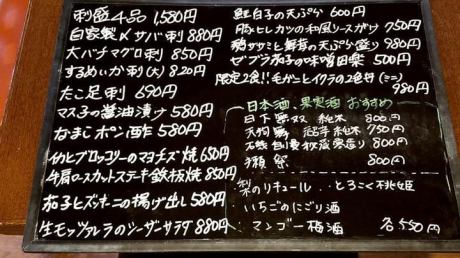 刺盛4品 1,580円
自家製〆サバ刺 880円
大バチマグロ刺 850円
するめいか刺(大) 820円
たこ足刺 690円
マス子の醤油漬け 580円
なまこポン酢 580円
イカとブロッコリーのマヨチーズ焼 650円
牛肩ロースカットステーキ鉄板焼 850円
茄子とズッキーニの揚げ出し 580円
生モッツァレラのシーザーサラダ 880円
鮭白子の天ぷら 600円
豚ヒレカツの和風ソースがけ 750円
鶏ササミと舞茸の天ぷら盛り 980円
ゼブラ茄子の味噌田楽 500円
限定2食!! 毛ガニとイクラの2色丼(ミニ)
980円
日本酒、果実酒 おすすめ
日下無双 純米 800円
天狗舞 純米 750円
石鎚 自慢 秘蔵 造り 800円
獺祭 800円
梨のリキュール・・とろこく桃姫
いちごのにごり酒
マンゴー梅酒 各550円